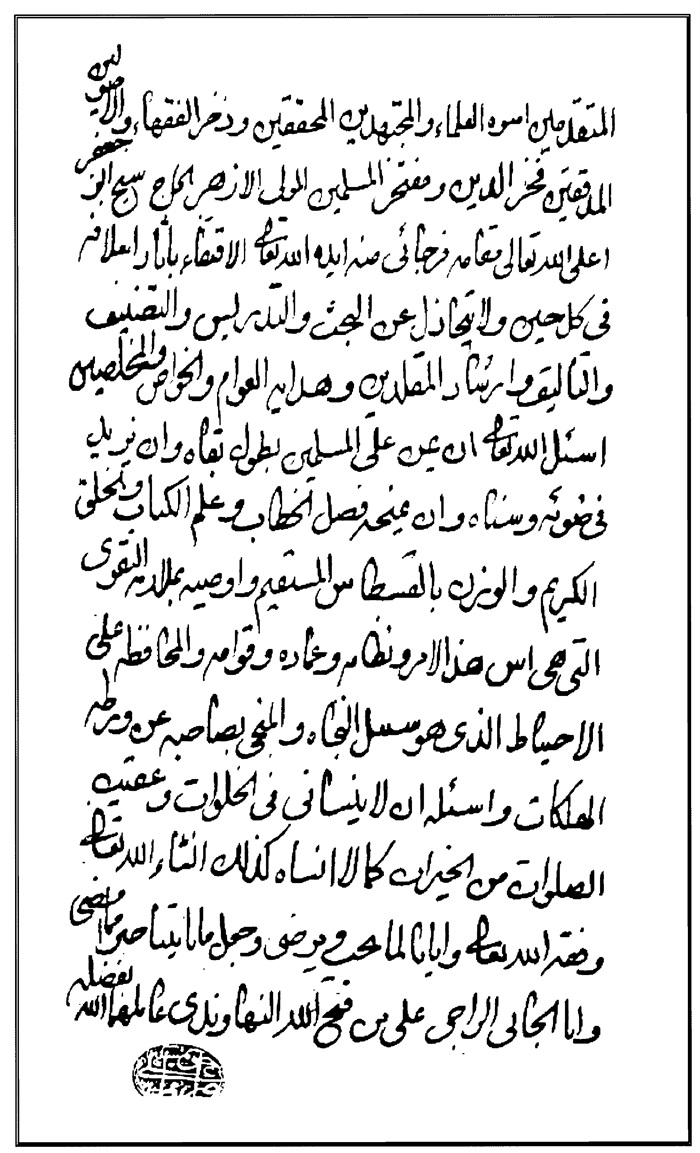 المتقدمين اسوه العلماء والمجتهدين المحققين وذخر الفقهاء والاصوليين
المدققين فخر الدين ومفتخر المسلمين المولى الازهر الحاج شيخ جعفر
اعلى الله تعالى مقامه فرجائى منه ايده الله تعالى الاقتفاء باثار اعلامه
فى كل حين ولا يتخاذل عن البحث والتدريس والتصنيف
والتاليف وارشاد المقلدين وهدايه العوام والخواص والمخلصين
اسئل الله تعالى ان يمن على المسلمين بطول بقاه وان يزيد
فى ضوئه وسناه وان يمنحه فصل الخطاب وعلم الكتاب والخلق
الكريم والوزن بالقسطاس المستقيم واوصيه بملازمه التقوى
التى هى اس هذا الامر ونظامه وعماده وقوامه والمحافظه على
الاحتياط الذى هو سبيل النجاه والمنجى بصاحبه عن ورطه
الهلكات واسئله ان لا ينسانى فى الخلوات وعقيب
الصلوات من الخيرات كما لا انساه كذلك انشاء الله تعالى
وفقه الله تعالى وايانا لما يحب ويرضى وجعل ما ياتينا خيرا مما مضى
وانا الجانى الراجى على بن فتح الله النهاوندى عاملهما الله بفضله